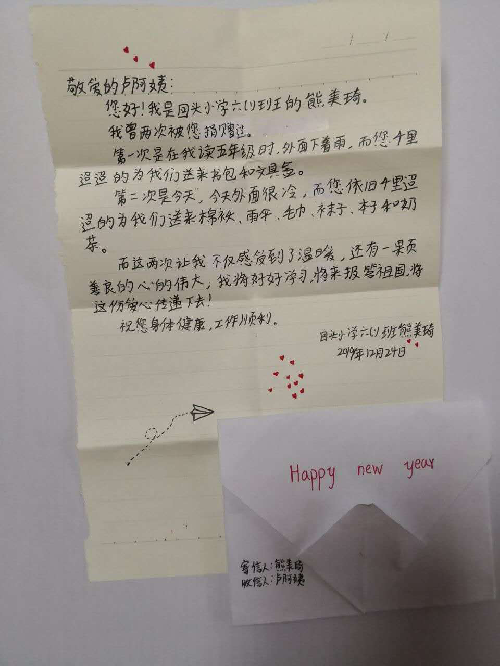 敬爱的卢阿姨：
您好！我是回头小学六(1)班的熊美琦。
我曾两次被您捐赠过。
第一次是在我读五年级时，外面下着雨，而您千里
迢迢的为我们送来书包和文具盒。
第二次是今天，今天外面很冷，而您依旧千里迢
迢的为我们送来棉袄、雨伞、毛巾、袜子、本子和奶
茶。
而这两次让我不仅感受到了温暖，还有一颗页
善良的心的伟大，我将好好学习，将来报答祖国，将
这份爱心传递下去！
祝您身体健康，工作顺利。
回头小学六(1)班熊美琦
2019年12月24日
Happy new year
寄信人：熊美琦
收信人：卢阿姨